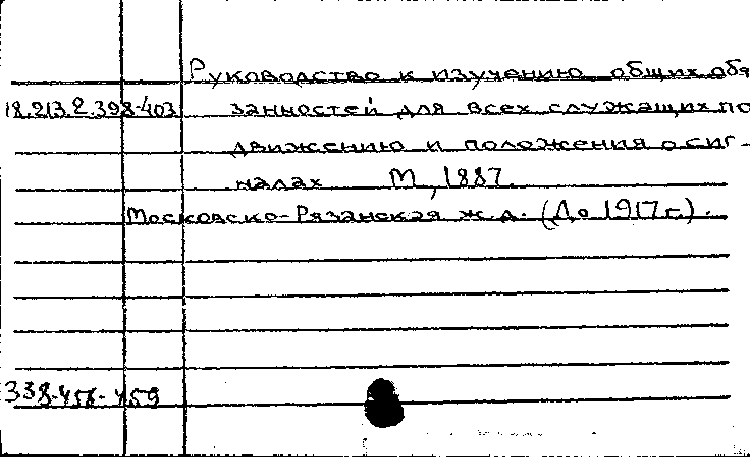 Руководство к изучению общих обя
18.213.2.398-403 занностей для всех служащих по
движению и положения о сиг-
налах М, 1887.
Московско-Рязанская ж.д. (До 1917 г.).
338-456-459